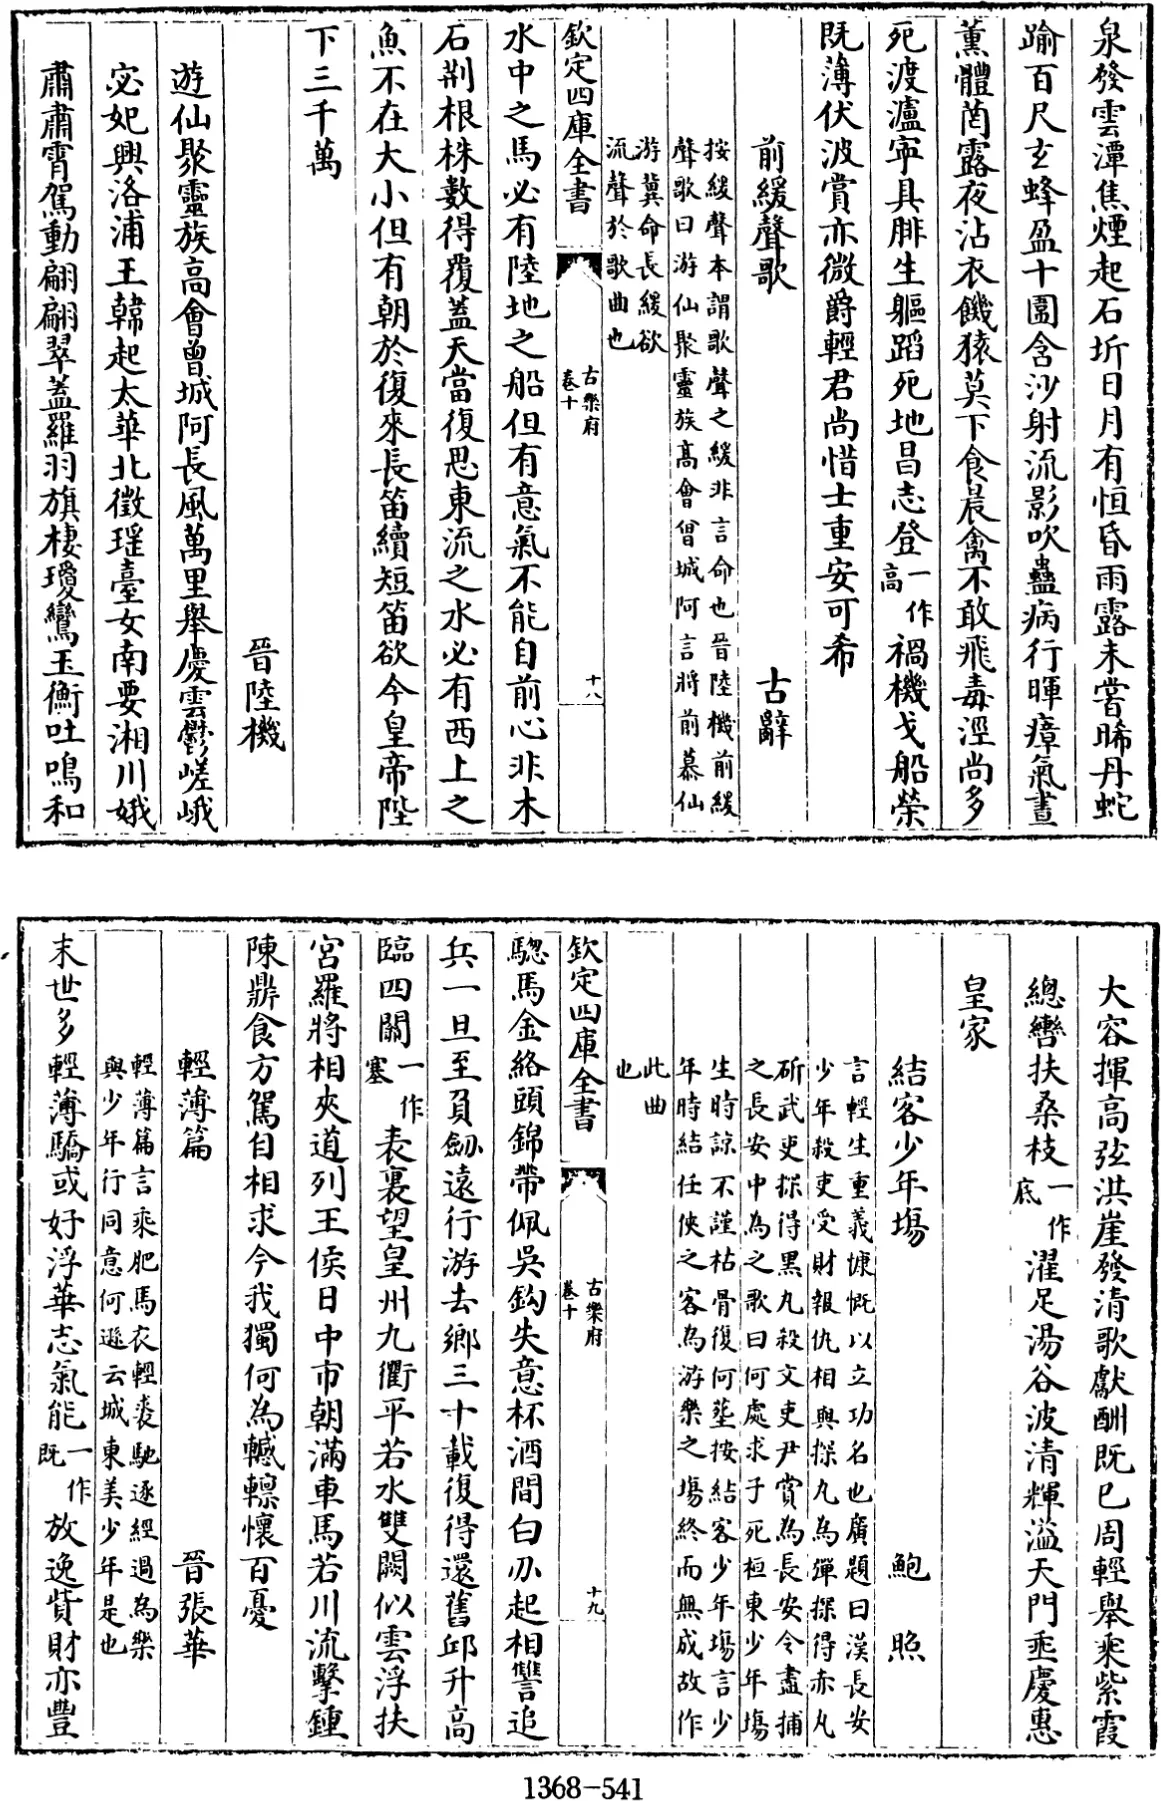 泉發雲潭焦煙起石圻日月有恒昏雨露未嘗晞丹蛇
踰百尺玄蜂盈十圍含沙射流影吹蠱病行暉瘴氣晝
薰體茵露夜沾衣饑猿莫下食晨禽不敢飛毒涇尚多
死渡瀘寧具腓生軀蹈死地昌志登一作高禍機戈船榮
既薄伏波賞亦微爵輕君尚惜士重安可希
前緩聲歌 古辭
按緩聲本謂歌聲之緩非言命也晉陸機前緩
聲歌曰游仙聚靈族高會曾城阿言將前慕仙
游冀命長緩欲
流聲於歌曲也
欽定四庫全書 古樂府 卷十 十八
水中之馬必有陸地之船但有意氣不能自前心非木
石荆根株數得覆蓋天當復思東流之水必有西上之
魚不在大小但有朝於復來長笛續短笛欲今皇帝陛
下三千萬
晉陸機
遊仙聚靈族高會曾城阿長風萬里舉慶雲鬱嵯峨
宓妃興洛浦王韓起太華北徵瑶臺女南要湘川娥
肅肅霄駕動翩翩翠蓋羅羽旗棲瓊鸞玉衡吐鳴和
大容揮高弦洪崖發清歌獻酬既已周輕舉乘紫霞
總轡扶桑枝一作底濯足湯谷波清輝溢天門垂慶惠
皇家
結客少年塲 鮑照
言輕生重義慷慨以立功名也廣題曰漢長安
少年殺吏受財報仇相與探丸為彈探得赤丸
斫武吏探得黑丸殺文吏尹賞為長安令盡捕
之長安中為之歌曰何處求子死桓東少年塲
生時諒不謹枯骨復何塟按結客少年塲言少
年時結任俠之客為游樂之塲終而無成故作
此曲
也
欽定四庫全書 古樂府 卷十 十九
驄馬金絡頭錦帶佩吳鈎失意杯酒間白刃起相讐追
兵一旦至負劒遠行游去鄉三十載復得還舊邱升高
臨四關一作塞表裏望皇州九衢平若水雙闕似雲浮扶
宮羅將相夾道列王侯日中市朝滿車馬若川流擊鍾
陳鼎食方駕自相求今我獨何為轗軻懷百憂
輕薄篇 晉張華
輕薄篇言乘肥馬衣輕裘馳逐經過為樂
與少年行同意何遜云城東美少年是也
末世多輕薄驕或好浮華志氣能一作既放逸貲財亦豐
1368-541